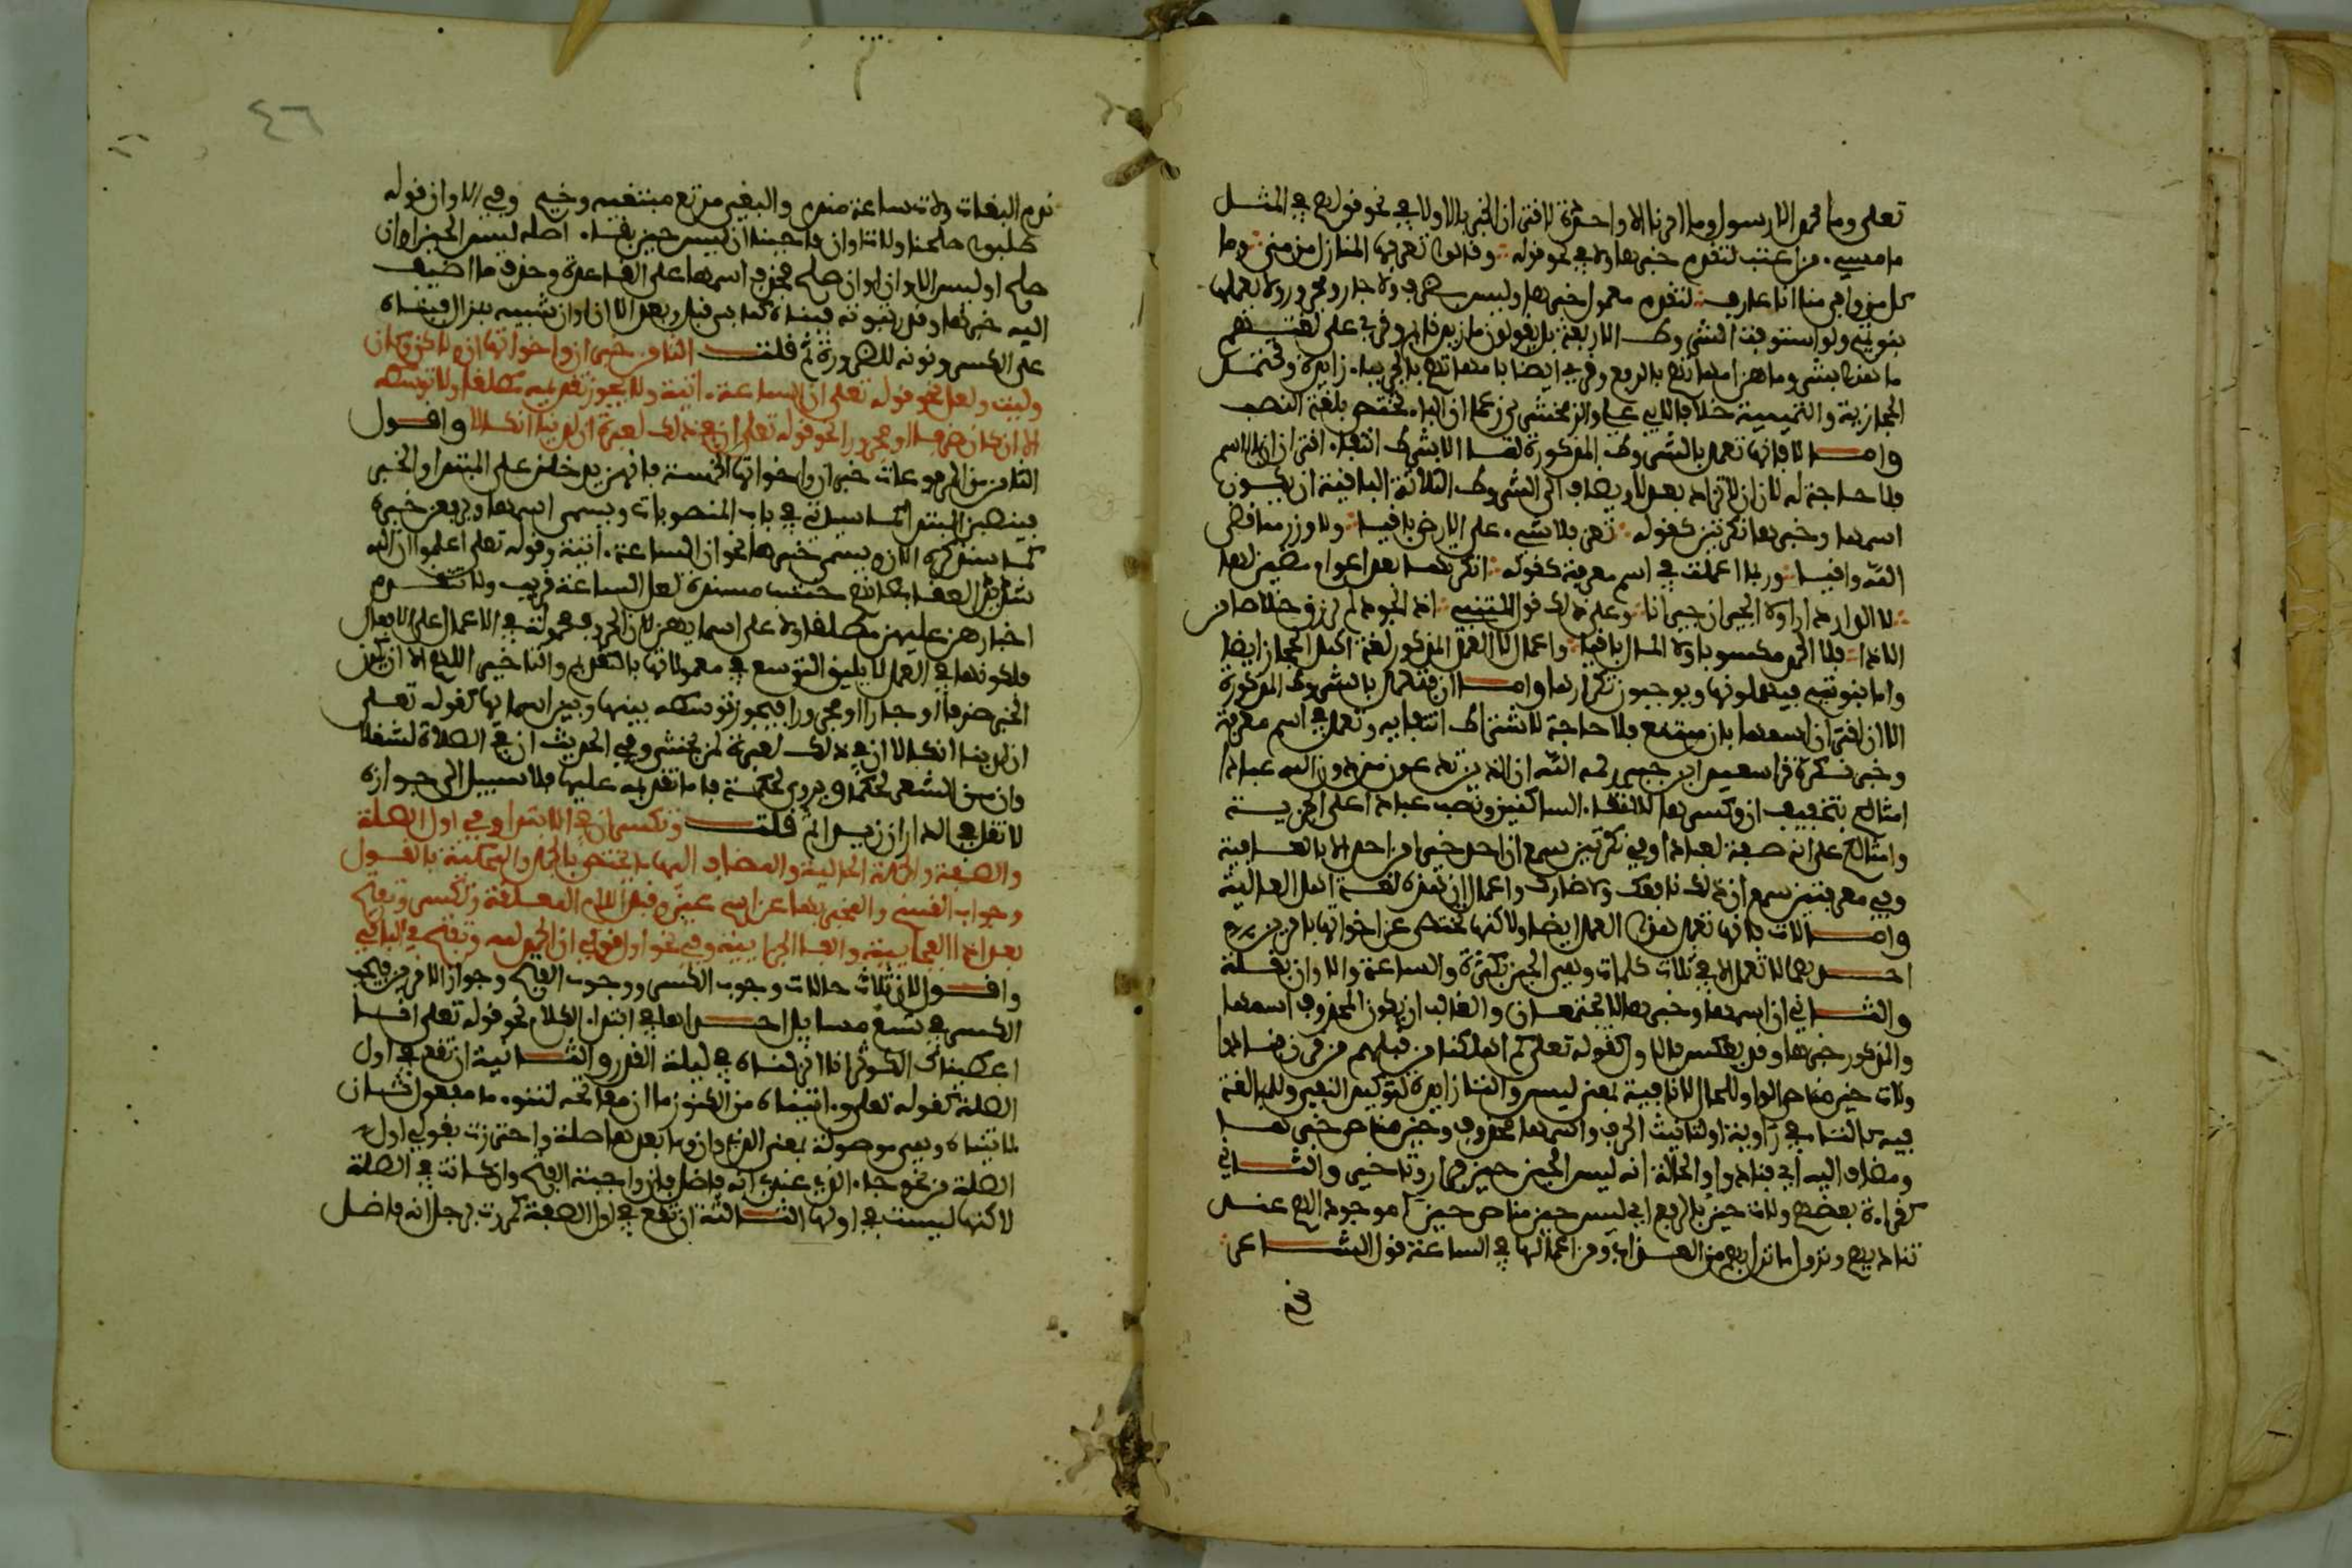 تعلى وما محمد الا رسول وما امرنا الا واحدة لاقتران الخبر بالا ولا في نحو قولهم في المثل
ما مسيء من اعتب لتقدم خبرها ولا في نحو قوله وقالوا تعرفها المنازل من منى وما
كل من وافى منى انا عارف لتقدم معمول خبرها وليس بظرف ولا جار ومجرور ولا يعملها
بنو تميم ولو استوفت الشروط الاربعة بل يقولون ما زيد قائم وقرئ على لغتهم
ما هذا بشر وما هن امهاتهم بالرفع وقرئ ايضا بامهاتهم بالجر بباء زايدة وتحتمل
الحجازية والتميمية خلافا لابي علي والزمخشري زعما ان الباء تختص بلغة النصب
واما لا فانها تعمل بالشروط المذكورة لها الا بشرط انتفاء اقتران ان بالاسم
فلا حاجة له لان ان لا تزاد بعد لا ويضاف الى الشروط الثلاثة الباقية ان يكون
اسمها وخبرها نكرتين كقوله تعز فلا شيء على الارض باقيا ولا وزر مما قضى
الله واقيا وربما اعملت في اسم معرفة كقوله انكرتها بعد اعوام مضين لها
لا الدار دارا ولا الجيران جيرانا وعلى ذلك قول المتنبي اذا الجود لم يرزق خلاصا من
الاذى فلا الحمد مكسوبا ولا المال باقيا واعمال لا العمل المذكور لغة اهل الحجاز ايضا
واما بنو تميم فيهملونها ويوجبون تكرارها واما ان فتعمل بالشروط المذكورة
الا ان اقتران اسمها بان ممتنع فلا حاجة لاشتراط انتفايه وتعمل في اسم معرفة
وخبر نكرة قرا سعيد ابن جبير رحمه الله ان الذين تدعون من دون الله عبادا
امثالكم بتخفيف ان وكسرها لالتقاء الساكنين ونصب عبادا على الخبرية
وامثالكم على انه صفة لعبادا وفي نكرتين سمع ان احد خيرا من احد الا بالعافية
وفي معرفتين سمع ان ذلك نافعك ولا ضارك واعمال ان هذه لغة اهل العالية
واما لات فانها تعمل هذا العمل ايضا ولاكنها تختص عن اخواتها بامرين
احدهما لا تعمل الا في ثلاث كلمات وهي الحين بكثرة والساعة والاوان بقلة
والثاني ان اسمها وخبرها لا يجتمعان والغالب ان يكون المحذوف اسمها
والمذكور خبرها وقد يعكس فالاول كقوله تعلى كم اهلكنا من قبلهم من قرن فنادوا
ولات حين مناص الواو للحال لا نافية بمعنى ليس والتا زايدة لتوكيد النفي وللمبالغة
فيه كالتاء في راوية او لتانيث الحرف واسمها محذوف وحين مناص خبرها
ومضاف اليه اي فنادوا والحالة انه ليس الحين حين فرار وتاخير والثاني
كقراءة بعضهم ولات حين بالرفع اي ليس حين مناص حين موجودا لهم عند
تناديهم ونزول ما نزل بهم من العذاب ومن اعمالها في الساعة قول الشاعر
ند
٤٦
ندم البغات ولات ساعة مندم والبغي مرتع مبتغيه وخيم وفي الاوان قوله
طلبوا صلحنا ولات اوان فاجبنا ان ليس حين بقاء اصله ليس الحين اوان
صلح او ليس الاوان اوان صلح فحذف اسمها على القاعدة وحذف ما اضيف
اليه خبرها وقدر ثبوته فبناه كما بني قبل وبعد الا ان اوان شبيه بنزال فبناه
على الكسر ونونه للضرورة ثم قلت الثامن خبر ان واخواتها ان ولكن وكان
وليت ولعل نحو قوله تعلى ان الساعة اتية ولا يجوز تقديمه مطلقا ولا توسطه
الا ان كان ظرفا او مجرورا نحو قوله تعلى ان في ذلك لعبرة ان لدينا انكالا واقول
الثامن من المرفوعات خبر ان واخواتها الخمسة فانهن يدخلن على المبتدا والخبر
فينصبن المبتدا كما سياتي في باب المنصوبات ويسمى اسمها ويرفعن خبره
كما سنذكره الان ويسمى خبرها نحو ان الساعة اتية وقوله تعلى اعلموا ان الله
شديد العقاب كانهم خشب مسندة لعل الساعة قريب ولا تتقدم
اخبارهن عليهن مطلقا ولا على اسمايهن لان الحروف محمولة في الاعمال على الافعال
فلكونها في العمل لا يليق التوسع في معمولاتها بالتقديم والتاخير اللهم الا ان يكون
الخبر ظرفا او جارا ومجرورا فيجوز توسطه بينها وبين اسمايها كقوله تعلى
ان لدينا انكالا ان في ذلك لعبرة لمن يخشى وفي الحديث ان في الصلاة لشغلا
وان من الشعر لحكما ويروى لحكمة فاما تقديمه عليها فلا سبيل الى جوازه
لا تقل في الدار ان زيدا ثم قلت وتكسر ان في الابتدا وفي اول الصلة
والصفة والجملة الحالية والمضاف اليها ما يختص بالجمل والمحكية بالقول
وجواب القسم والمخبر بها عن اسم عين وقبل اللام المعلقة وتكسر وتفتح
بعد اذا الفجايية والفاء الجزايية وفي نحو اول قولي اني احمد الله وتفتح في الباقي
واقول لان ثلاث حالات وجوب الكسر ووجوب الفتح وجواز الامرين فيجب
الكسر في تسع مسايل احداها في ابتداء الكلام نحو قوله تعلى انا
اعطيناك الكوثر انا انزلناه في ليلة القدر والثانية ان تقع في اول
الصلة كقوله تعلى واتيناه من الكنوز ما ان مفاتحه لتنوء ما مفعول ثان
لاتيناه وهي موصولة بمعنى الذي وان وما بعدها صلة واحترزت بقولي اول
الصلة من نحو جاء الذي عندي انه فاضل فان واجبة الفتح وان كانت في الصلة
لاكنها ليست في اولها الثالثة ان تقع في اول الصفة كمررت برجل انه فاضل